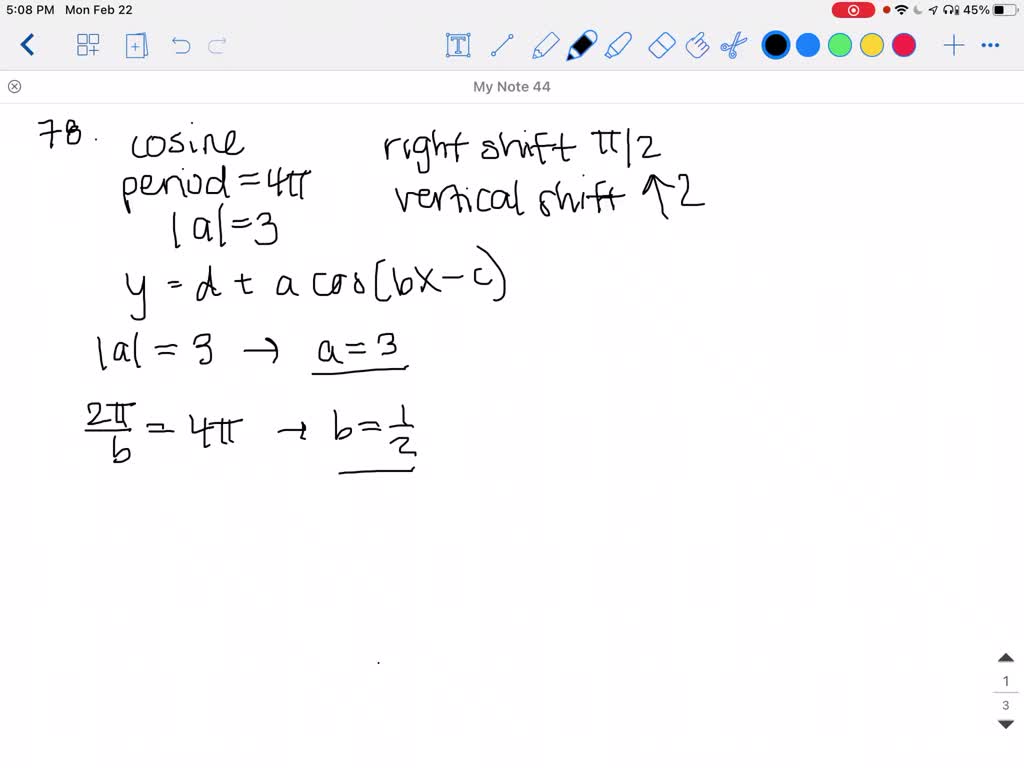 5:08 PM Mon Feb 22
45%
My Note 44
78. cosine
period = 4π
|a| = 3
right shift π/2
vertical shift ↑2
y = d + a cos(bx - c)
|a| = 3 → a = 3
2π/b = 4π → b = 1/2
1
3